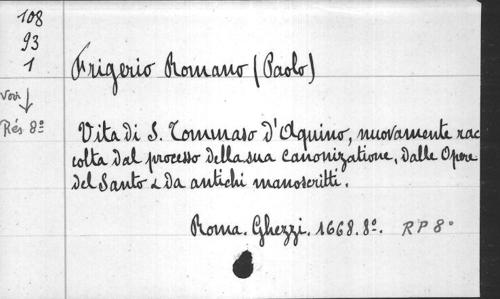 108
93
1
voir ↓
Rés 8º
Frigerio Romano (Paolo)
Vita di S. Tommaso d'Aquino, nuovamente rac
colta dal processo della sua canonizatione, dalle Opere
del Santo & da antichi manoscritti.
Roma. Ghezzi. 1668. 8º. RP 8º